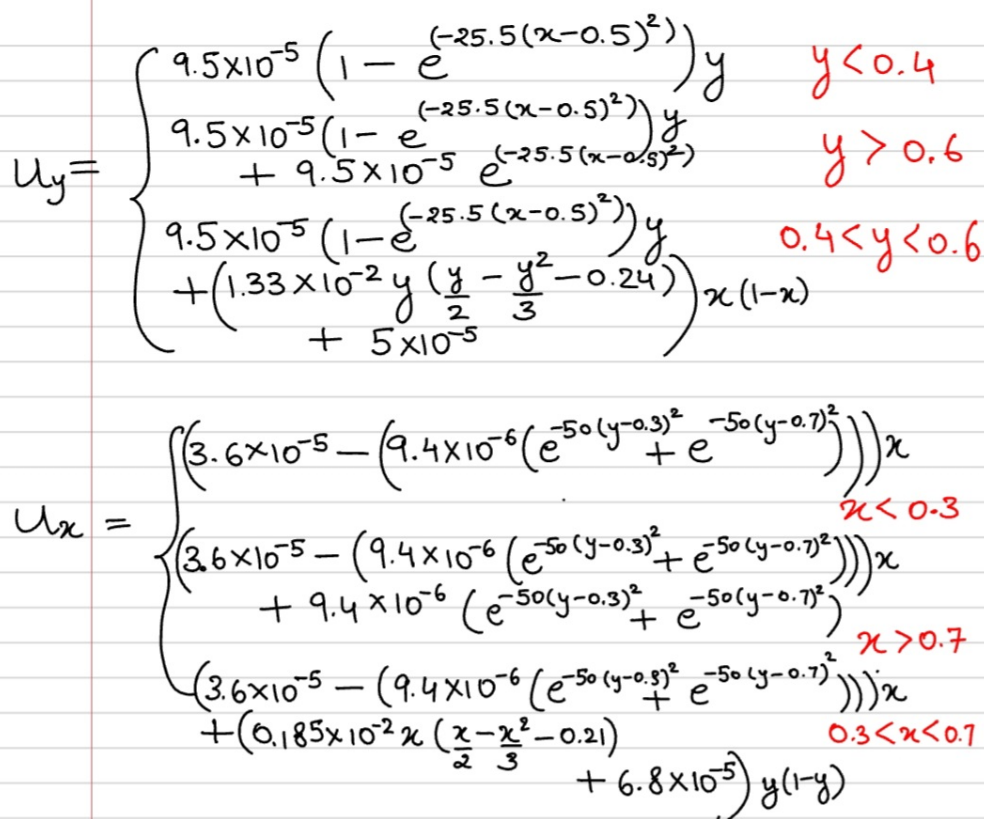 9.5×10⁻⁵ (1 − e^(-25.5(x-0.5)²)) y    y < 0.4
9.5×10⁻⁵ (1 − e^(-25.5(x-0.5)²)) y
+ 9.5×10⁻⁵ e^(-25.5(x-0.5)²)    y > 0.6
u_y =
9.5×10⁻⁵ (1 − e^(-25.5(x-0.5)²)) y    0.4 < y < 0.6
+ (1.33×10⁻² y (y/2 − y²/3 − 0.24)
+ 5×10⁻⁵) x(1-x)
(3.6×10⁻⁵ − (9.4×10⁻⁶ (e^-50(y-0.3)² + e^-50(y-0.7)²))) x
x < 0.3
u_x =
(3.6×10⁻⁵ − (9.4×10⁻⁶ (e^-50(y-0.3)² + e^-50(y-0.7)²))) x
+ 9.4×10⁻⁶ (e^-50(y-0.3)² + e^-50(y-0.7)²)
x > 0.7
(3.6×10⁻⁵ − (9.4×10⁻⁶ (e^-50(y-0.3)² + e^-50(y-0.7)²))) x
+ (0.185×10⁻² x (x/2 − x²/3 − 0.21)    0.3 < x < 0.7
+ 6.8×10⁻⁵) y(1-y)